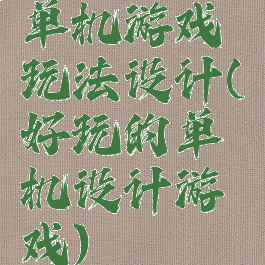 单机游戏
玩法设计(
好玩的单
机设计游
戏)